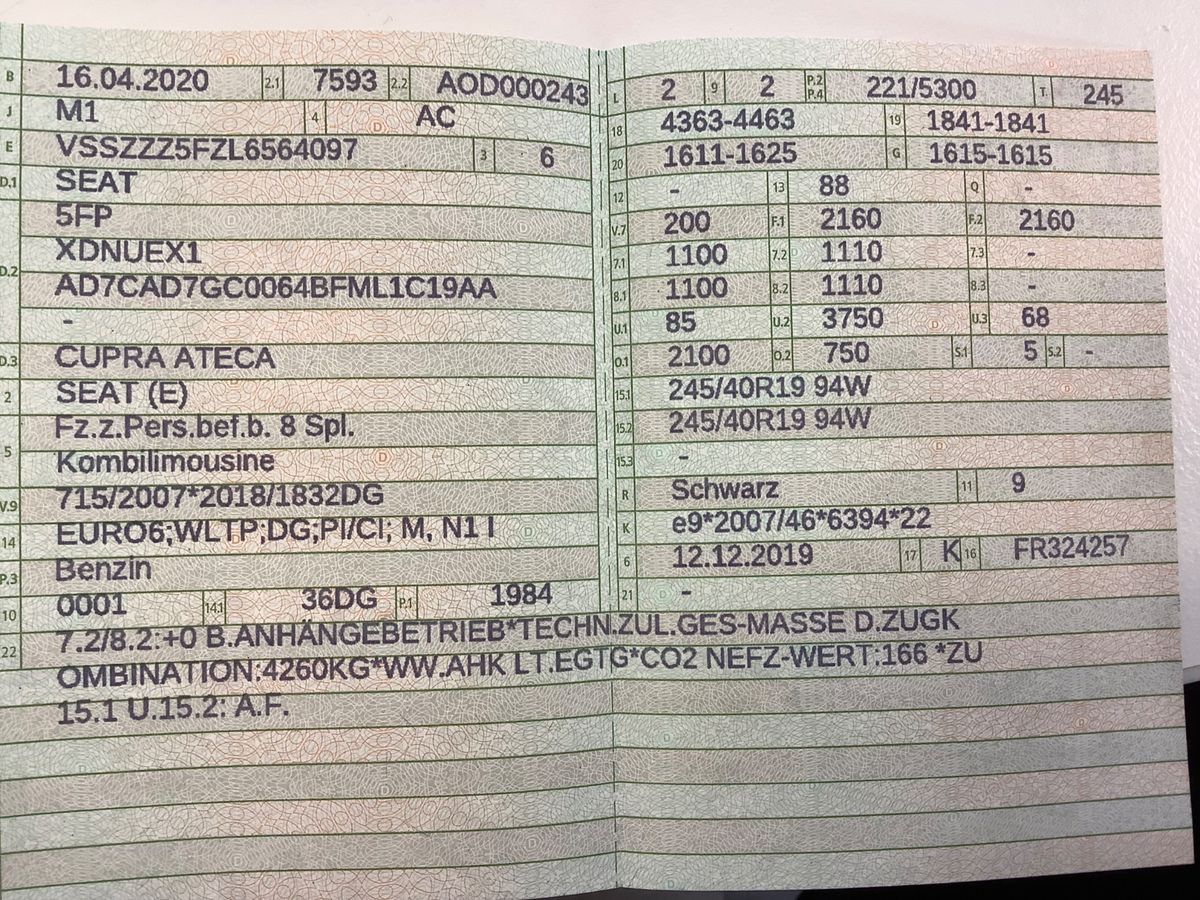 B 16.04.2020 2.1 7593 2.2 AOD000243
J M1 4 AC
E VSSZZZ5FZL6564097 3 6
D.1 SEAT
5FP
XDNUEX1
D.2 AD7CAD7GC0064BFML1C19AA
-
D.3 CUPRA ATECA
2 SEAT (E)
Fz.z.Pers.bef.b. 8 Spl.
5 Kombilimousine
V.9 715/2007*2018/1832DG
14 EURO6;WLTP;DG;PI/CI; M, N1 I
P.3 Benzin
10 0001 14.1 36DG P.1 1984
L 2 9 2 P.2 P.4 221/5300 T 245
18 4363-4463 19 1841-1841
20 1611-1625 G 1615-1615
12 - 13 88 Q -
V.7 200 F.1 2160 F.2 2160
7.1 1100 7.2 1110 7.3 -
8.1 1100 8.2 1110 8.3 -
U.1 85 U.2 3750 U.3 68
O.1 2100 O.2 750 S.1 5 S.2 -
15.1 245/40R19 94W
15.2 245/40R19 94W
15.3 -
R Schwarz 11 9
K e9*2007/46*6394*22
6 12.12.2019 17 K 16 FR324257
21 -
22 7.2/8.2:+0 B.ANHÄNGEBETRIEB*TECHN.ZUL.GES-MASSE D.ZUGK
OMBINATION:4260KG*WW.AHK LT.EGTG*CO2 NEFZ-WERT:166 *ZU
15.1 U.15.2: A.F.